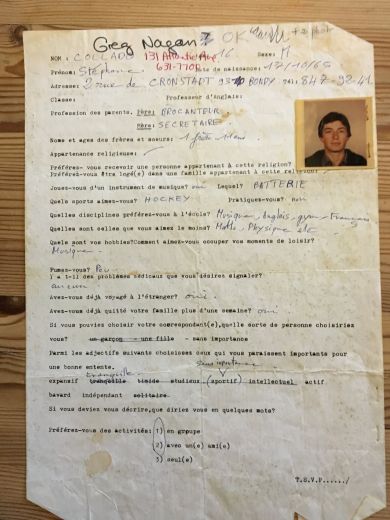 Greg Nagan OK
NOM: COLLADO 131 Atlantic Ave 16 Sexe: M
Prénom: Stéphane 631-7702 de naissance: 17/10/65
Adresse: 2 rue de CRONSTADT 93 BONDY Tél: 847-92-41
Classe: Professeur d'Anglais:
Profession des parents: Père: BROCANTEUR
Mère: SECRETAIRE
Noms et ages des frères et soeurs:
Appartenance religieuse:
Préférez-vous recevoir une personne appartenant à cette religion?
Préférez-vous être logé(e) dans une famille appartenant à cette religion?
Jouez-vous d'un instrument de musique? oui Lequel? BATTERIE
Quels sports aimez-vous? HOCKEY Pratiquez-vous? non
Quelles disciplines préférez-vous à l'école? Musique, Anglais, gym, Français
Quelles sont celles que vous aimez le moins? Math, Physique etc
Quels sont vos hobbies?Comment aimez-vous occuper vos moments de loisir?
Musique
Fumez-vous? Peu
Y a t-il des problèmes médicaux que vous désirez signaler?
aucun
Avez-vous déjà voyagé à l'étranger? oui
Avez-vous déjà quitté votre famille plus d'une semaine? oui
Si vous pouviez choisir votre correspondant(e),quelle sorte de personne choisiriez
vous? un garçon - une fille - sans importance
Parmi les adjectifs suivants choisissez deux qui vous paraissent importants pour
une bonne entente. sans importance
tranquille
expansif tranquille timide studieux (sportif) intellectuel actif
bavard indépendant solitaire
Si vous deviez vous décrire,que diriez vous en quelques mots?
Préférez-vous des activités: 1) en groupe
2) avec un(e) ami(e)
3) seul(e)
T.S.V.P....../